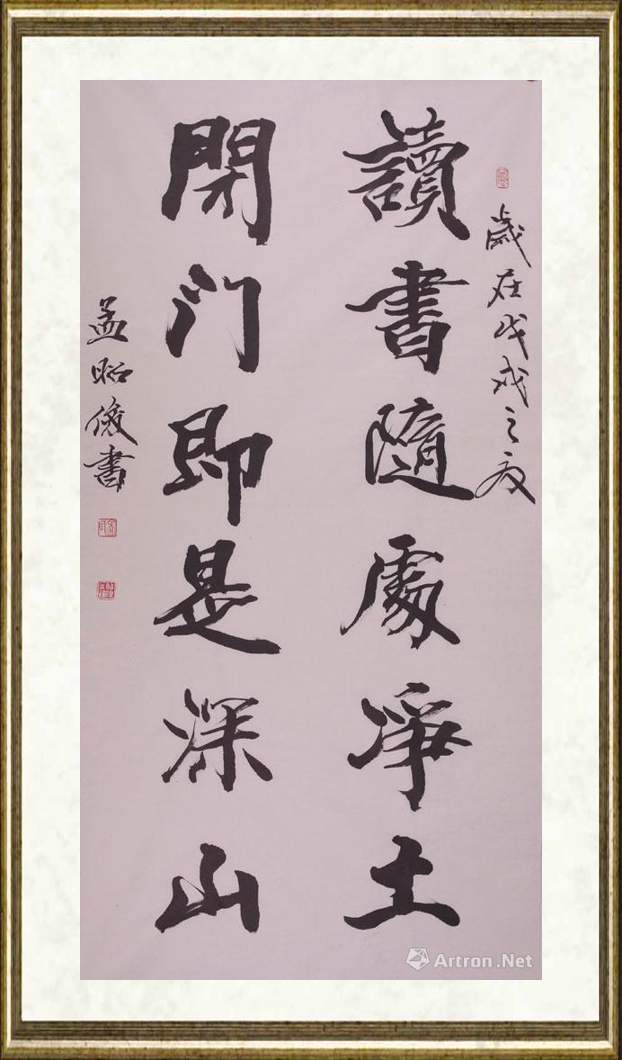 歲在戊戌之夏
讀書隨處凈土
閉门即是深山
孟昭俊書
Artron.Net